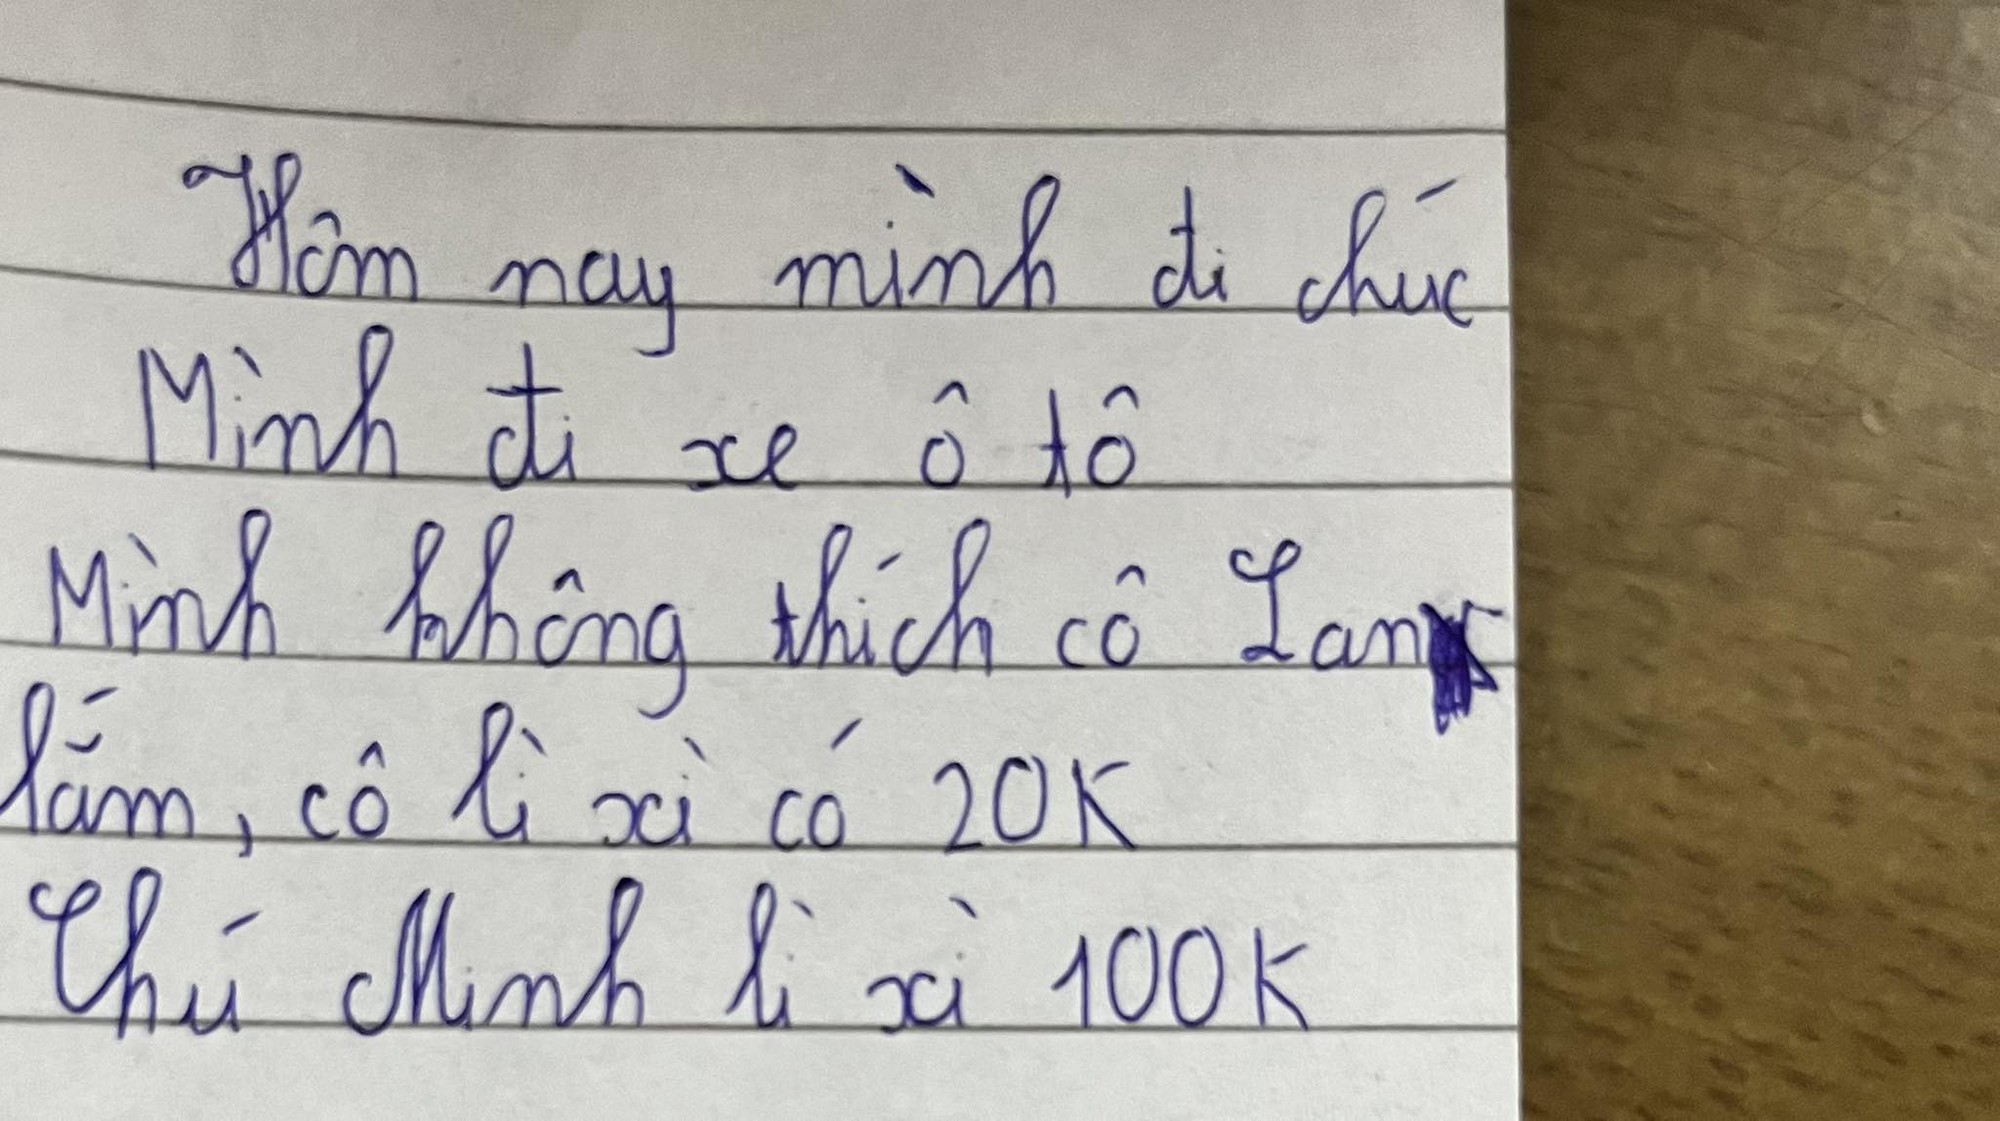 Hôm nay mình đi chúc
Mình đi xe ô tô
Mình không thích cô Lan
lắm, cô lì xì có 20K
Chú Minh lì xì 100K